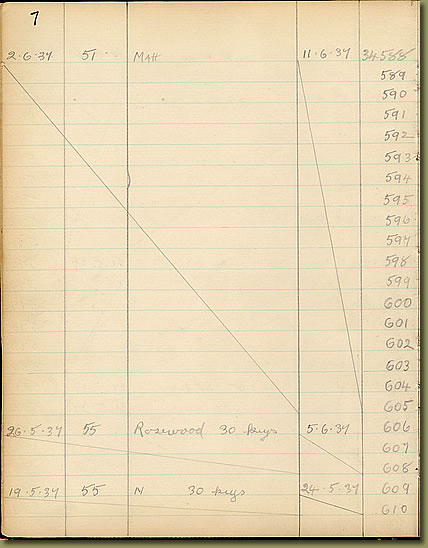 7
2·6·37 51 MAH 11·6·37 34588
589
590
591
592
593
594
595
596
597
598
599
600
601
602
603
604
605
26·5·37 55 Rosewood 30 keys 5·6·37 606
607
608
19·5·37 55 N 30 keys 24·5·37 609
610